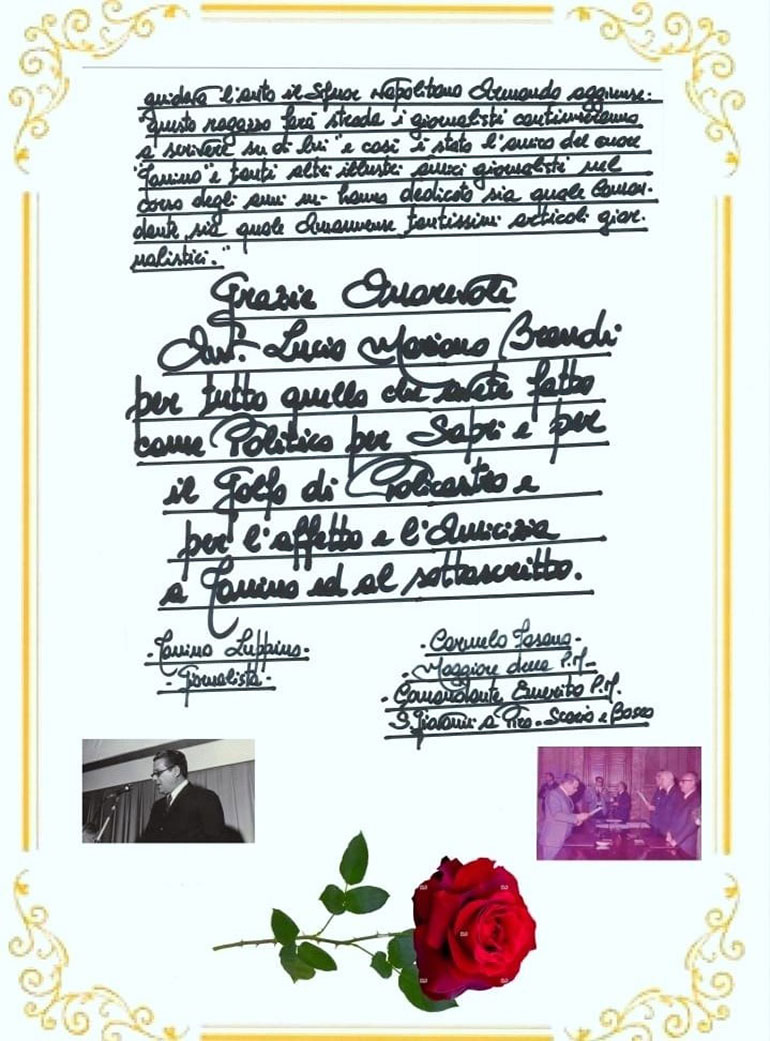 guidava l'auto il Signor Napolitano Armando aggiunse:
"questo ragazzo farà strada i giornalisti continueranno
a scrivere su di lui" e così è stato l'amico del cuore
"Tanino" e tanti altri illustri amici giornalisti nel
corso degli anni mi hanno dedicato sia quale Coman-
dante, sia quale tantissimi articoli gior-
nalistici."
Grazie Onorevole
Avv. Lucio Mariano Brandi
per tutto quello che avete fatto
come Politico per Sapri e per
il Golfo di Policastro e
per l'affetto e l'Amicizia
a Tanino ed al sottoscritto.
- Tanino Luppino -
- Giornalista -
- Carmelo Fasano -
- Maggiore della P.M. -
- Comandante Emerito P.M.
S. Giovanni a Piro - Scario e Bosco